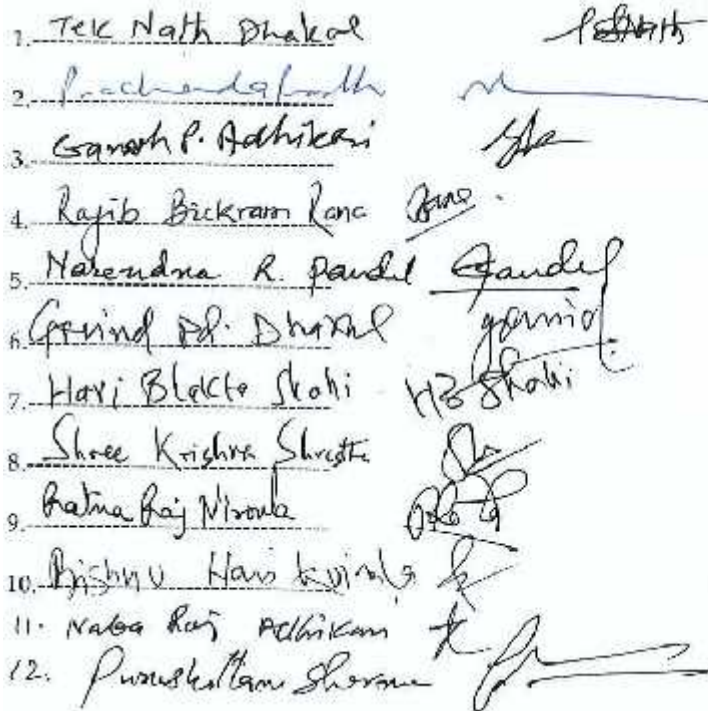 1. Tek Nath Dhakal
2. Prachanda Pradhan
3. Ganesh P. Adhikari
4. Rajib Bickram Rana Rana
5. Narendra R. Paudel Paudel
6. Govind Pd. Dhakal govind
7. Hari Bhakta Shahi HB Shahi
8. Shree Krishna Shrestha
9. Ratna Raj Niroula
10. Bishnu Hari Koirala
11. Naba Raj Adhikari
12. Purushottam Sharma